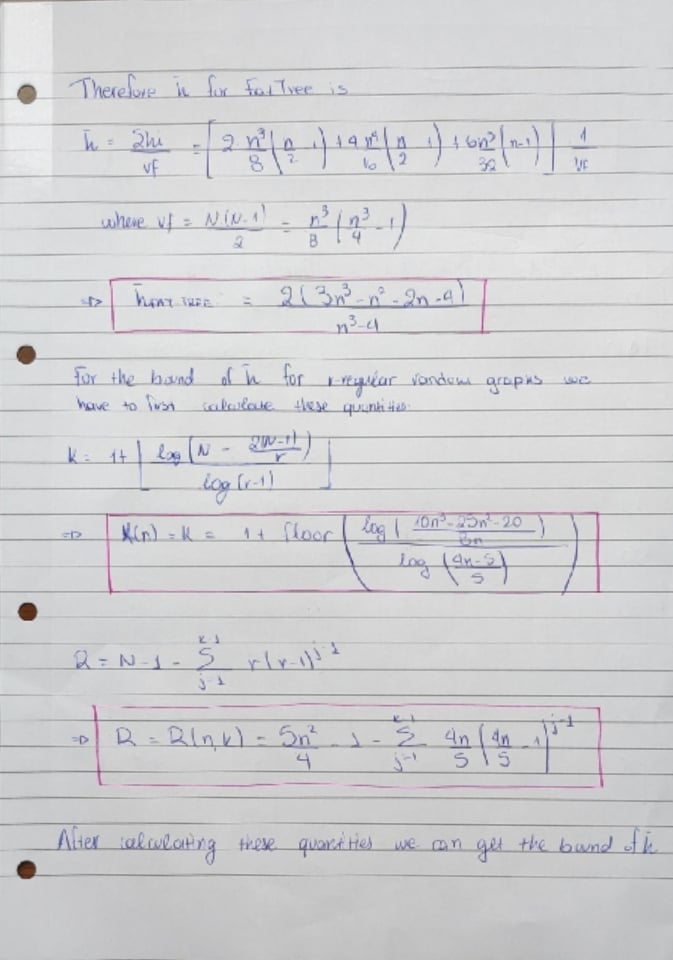 Therefore h̄ for FatTree is
h̄ = 2hi/vf = [2 n³/8 (n/2 - 1) + 4 n⁴/16 (n/2 - 1) + 6n³/32 (n-1)] 1/vf
where vf = N(N-1)/2 = n³/8 (n³/4 - 1)
⇒ h̄FAT TREE = 2(3n³ - n² - 2n - 4)/n³-4
For the bound of h̄ for r-regular random graphs we
have to first calculate these quantities.
k = 1+ ⌊ log(N - 2(N-1)/r) / log(r-1) ⌋
⇒ K(n) = k = 1 + floor ( log( 10n³-25n²-20 / 8n ) / log (4n-5/5) )
R = N-1 - Σ_{j=1}^{k-1} r(r-1)^{j-1}
⇒ R = R(n,k) = 5n²/4 - 1 - Σ_{j=1}^{k-1} 4n/5 (4n/5 - 1)^{j-1}
After calculating these quantities we can get the bound of h̄